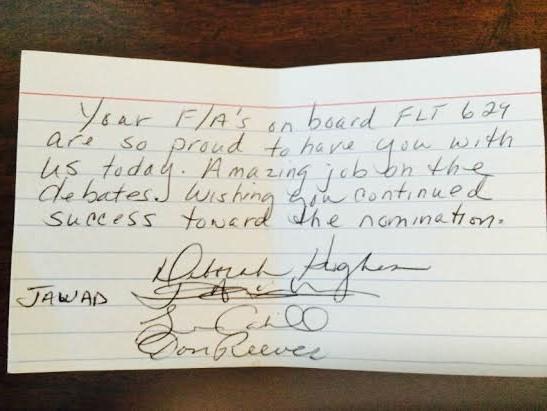 Your F/A's on board FLT 624
are so proud to have you with
us today. Amazing job on the
debates. Wishing you continued
success toward the nomination.
Deborah Hughes
JAWAD
Cahill
Don Reeves